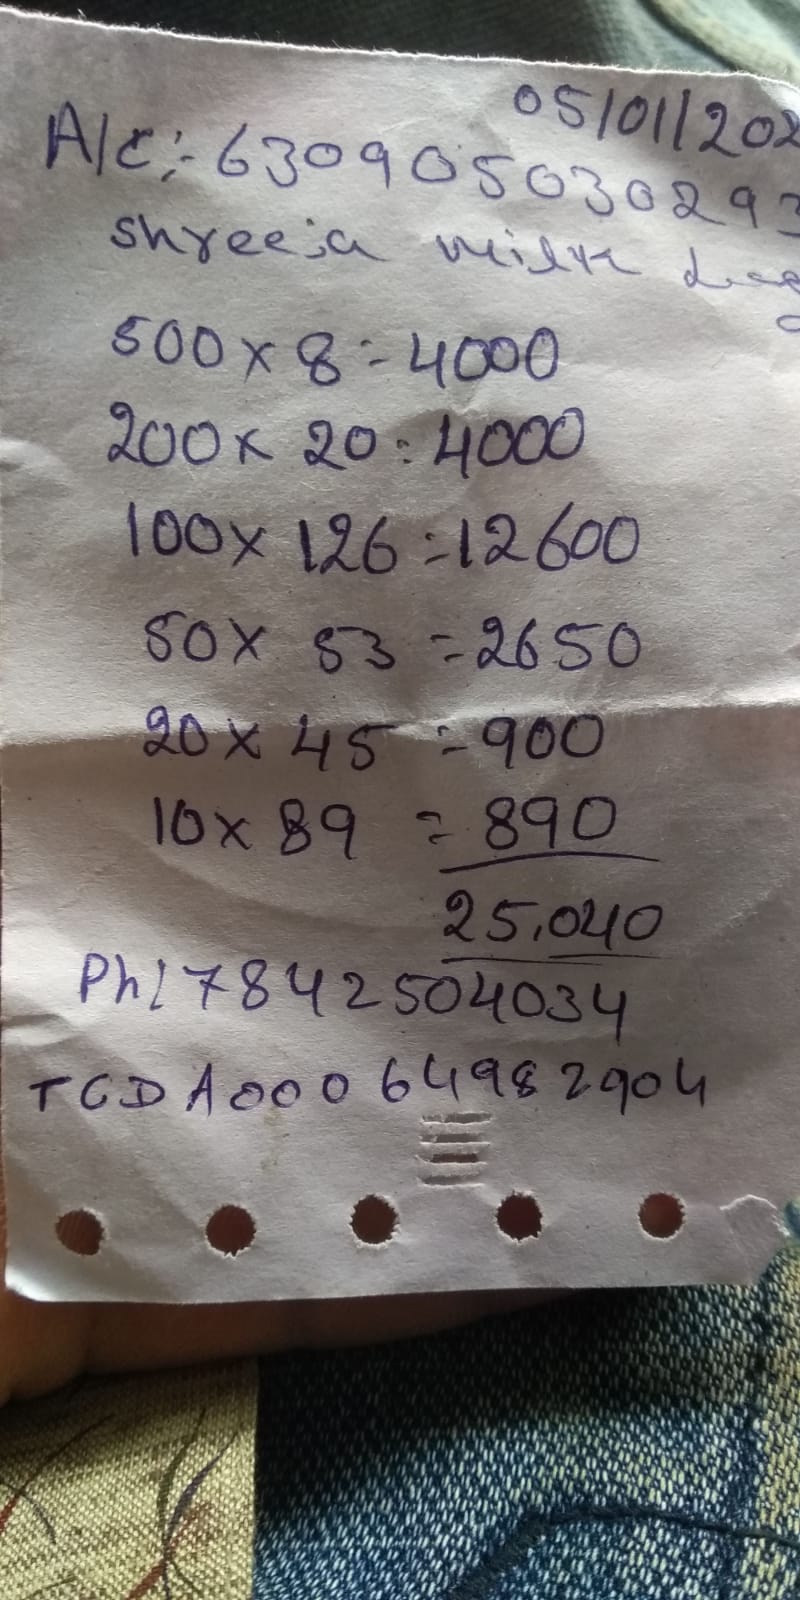 05/01/202
A/c:- 630905030293
shreeja milk
500 x 8 = 4000
200 x 20 : 4000
100 x 126 = 12600
50 x 53 = 2650
20 x 45 = 900
10 x 89 = 890
25,040
Ph/ 7842504034
TCDA00064982904